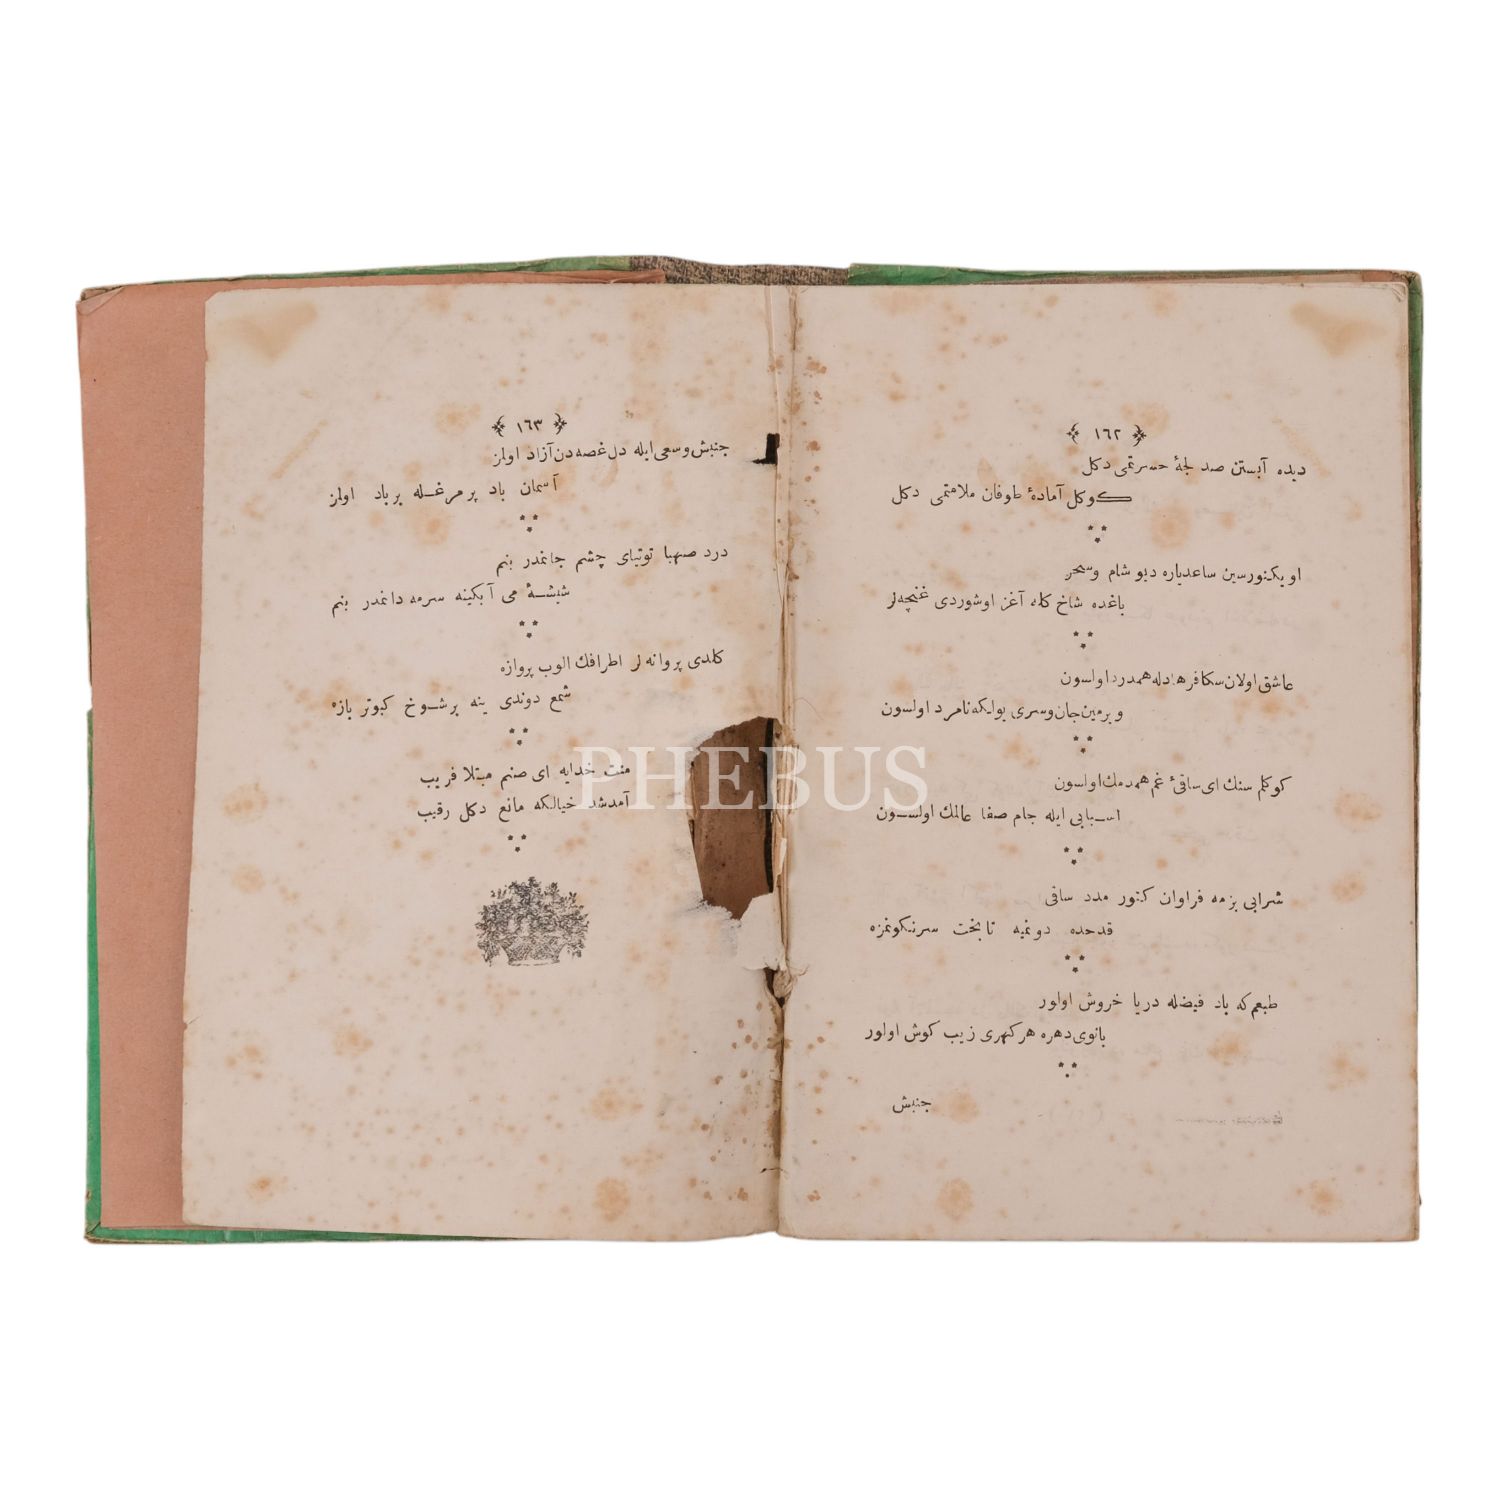 ١٦٢
دیده آبستن صد لجهٔ حسرتمی دکل
کوکل آمادهٔ طوفان ملامتمی دکل
اویکنورسین ساعدیاره دیو شام وسحر
باغده شاخ کله آغز اوشوردی غنچه‌لر
عاشق اولان سکا فرهادله همدرد اولسون
ویرمین جان وسری یولکه نامرد اولسون
کوکلم سنك ای ساقیٔ غم همدمك اولسون
اسبابی ایله جام صفا عالمك اولسون
شرابی بزمه فراوان کتور مدد ساقی
قدحده دونمیه تابخت سرنکونمزه
طبعم که باد فیضله دریا خروش اولور
بانوی دهره هر کهری زیب کوش اولور
جنبش
١٦٣
جنبش وسعی ایله دل غصه‌دن آزاد اولمز
آسمان باد پر مرغله برباد اولمز
درد صهبا توتیای چشم جانمدر بنم
شیشهٔ می آبکینه سرمه دانمدر بنم
کلدی پروانه‌لر اطرافك الوب پروازه
شمع دوندی ینه برشوخ کبوتر بازه
منت خدایه ای صنم مبتلا فریب
آمدشد خیالکه مانع دکل رقیب
PHEBUS